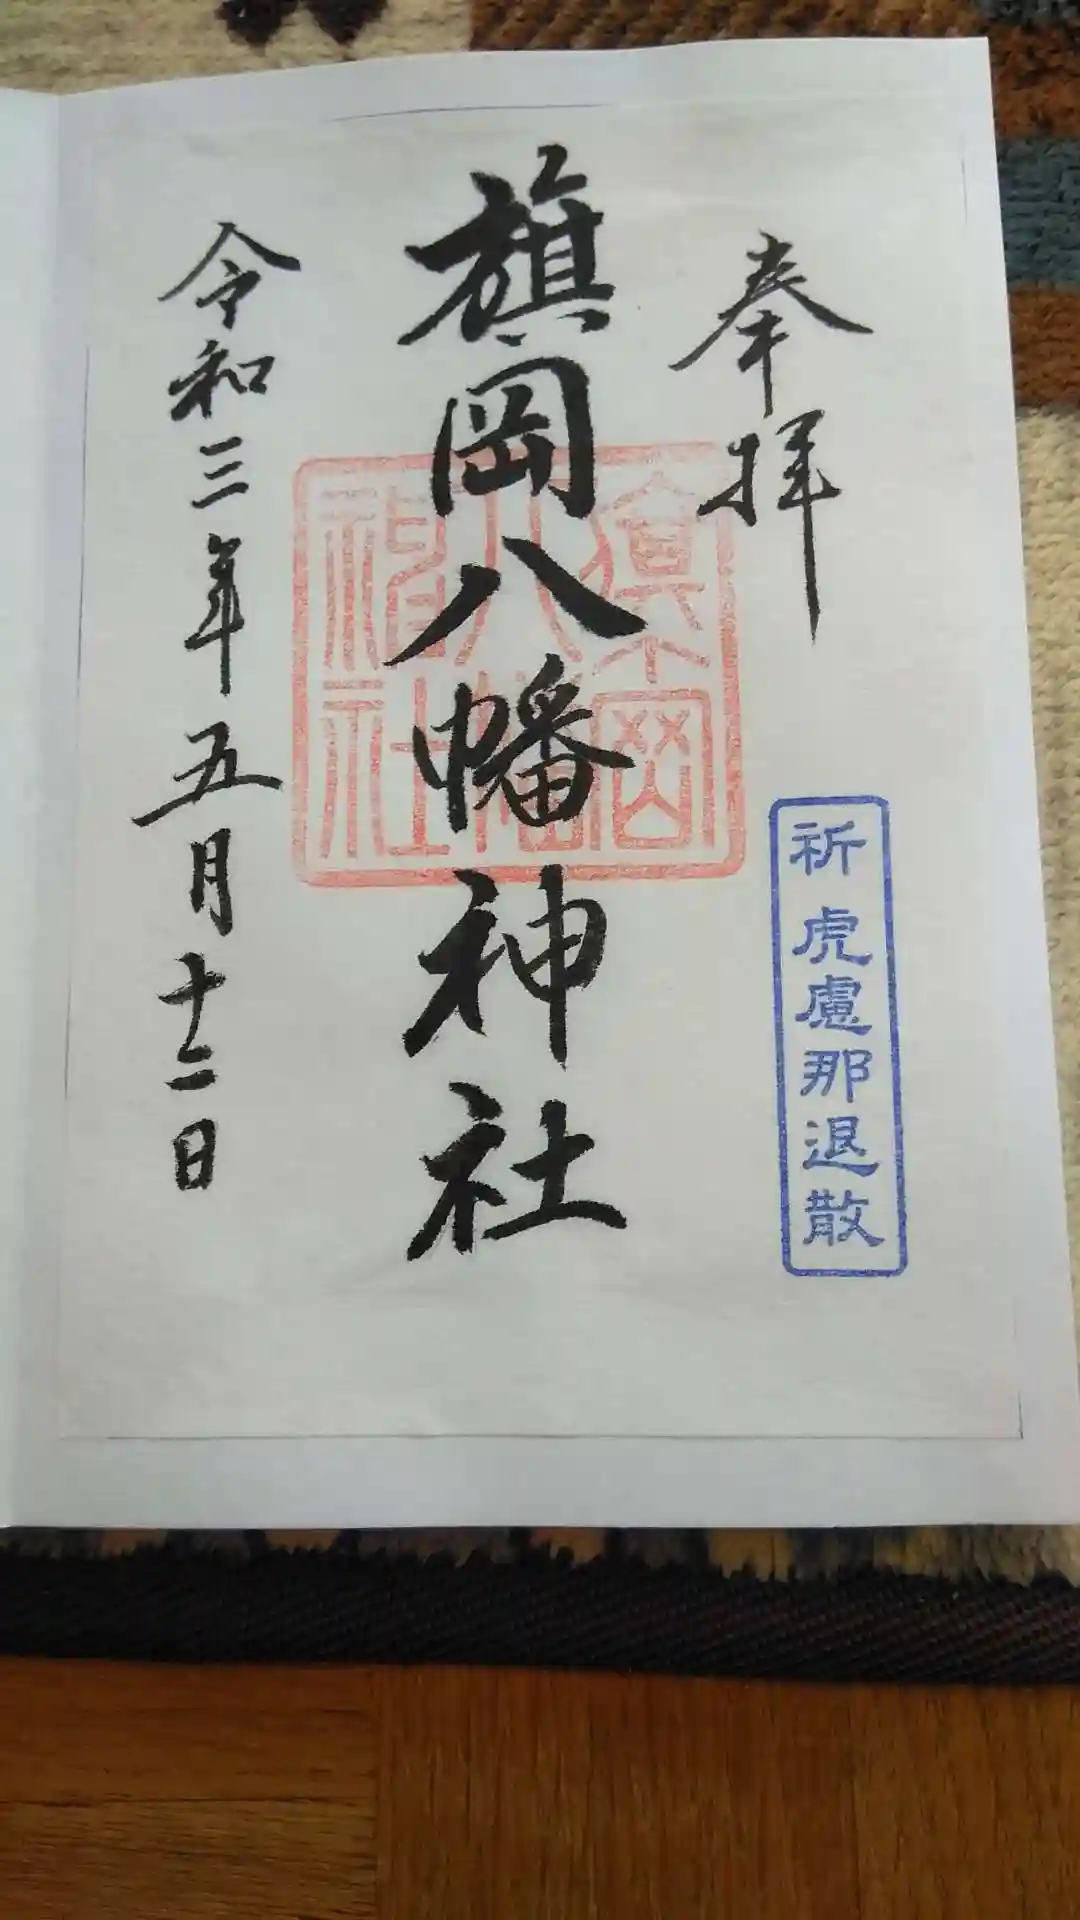 奉拝
祈 虎慮那退散
旗岡八幡神社
八幡
神社
令和三年五月十二日